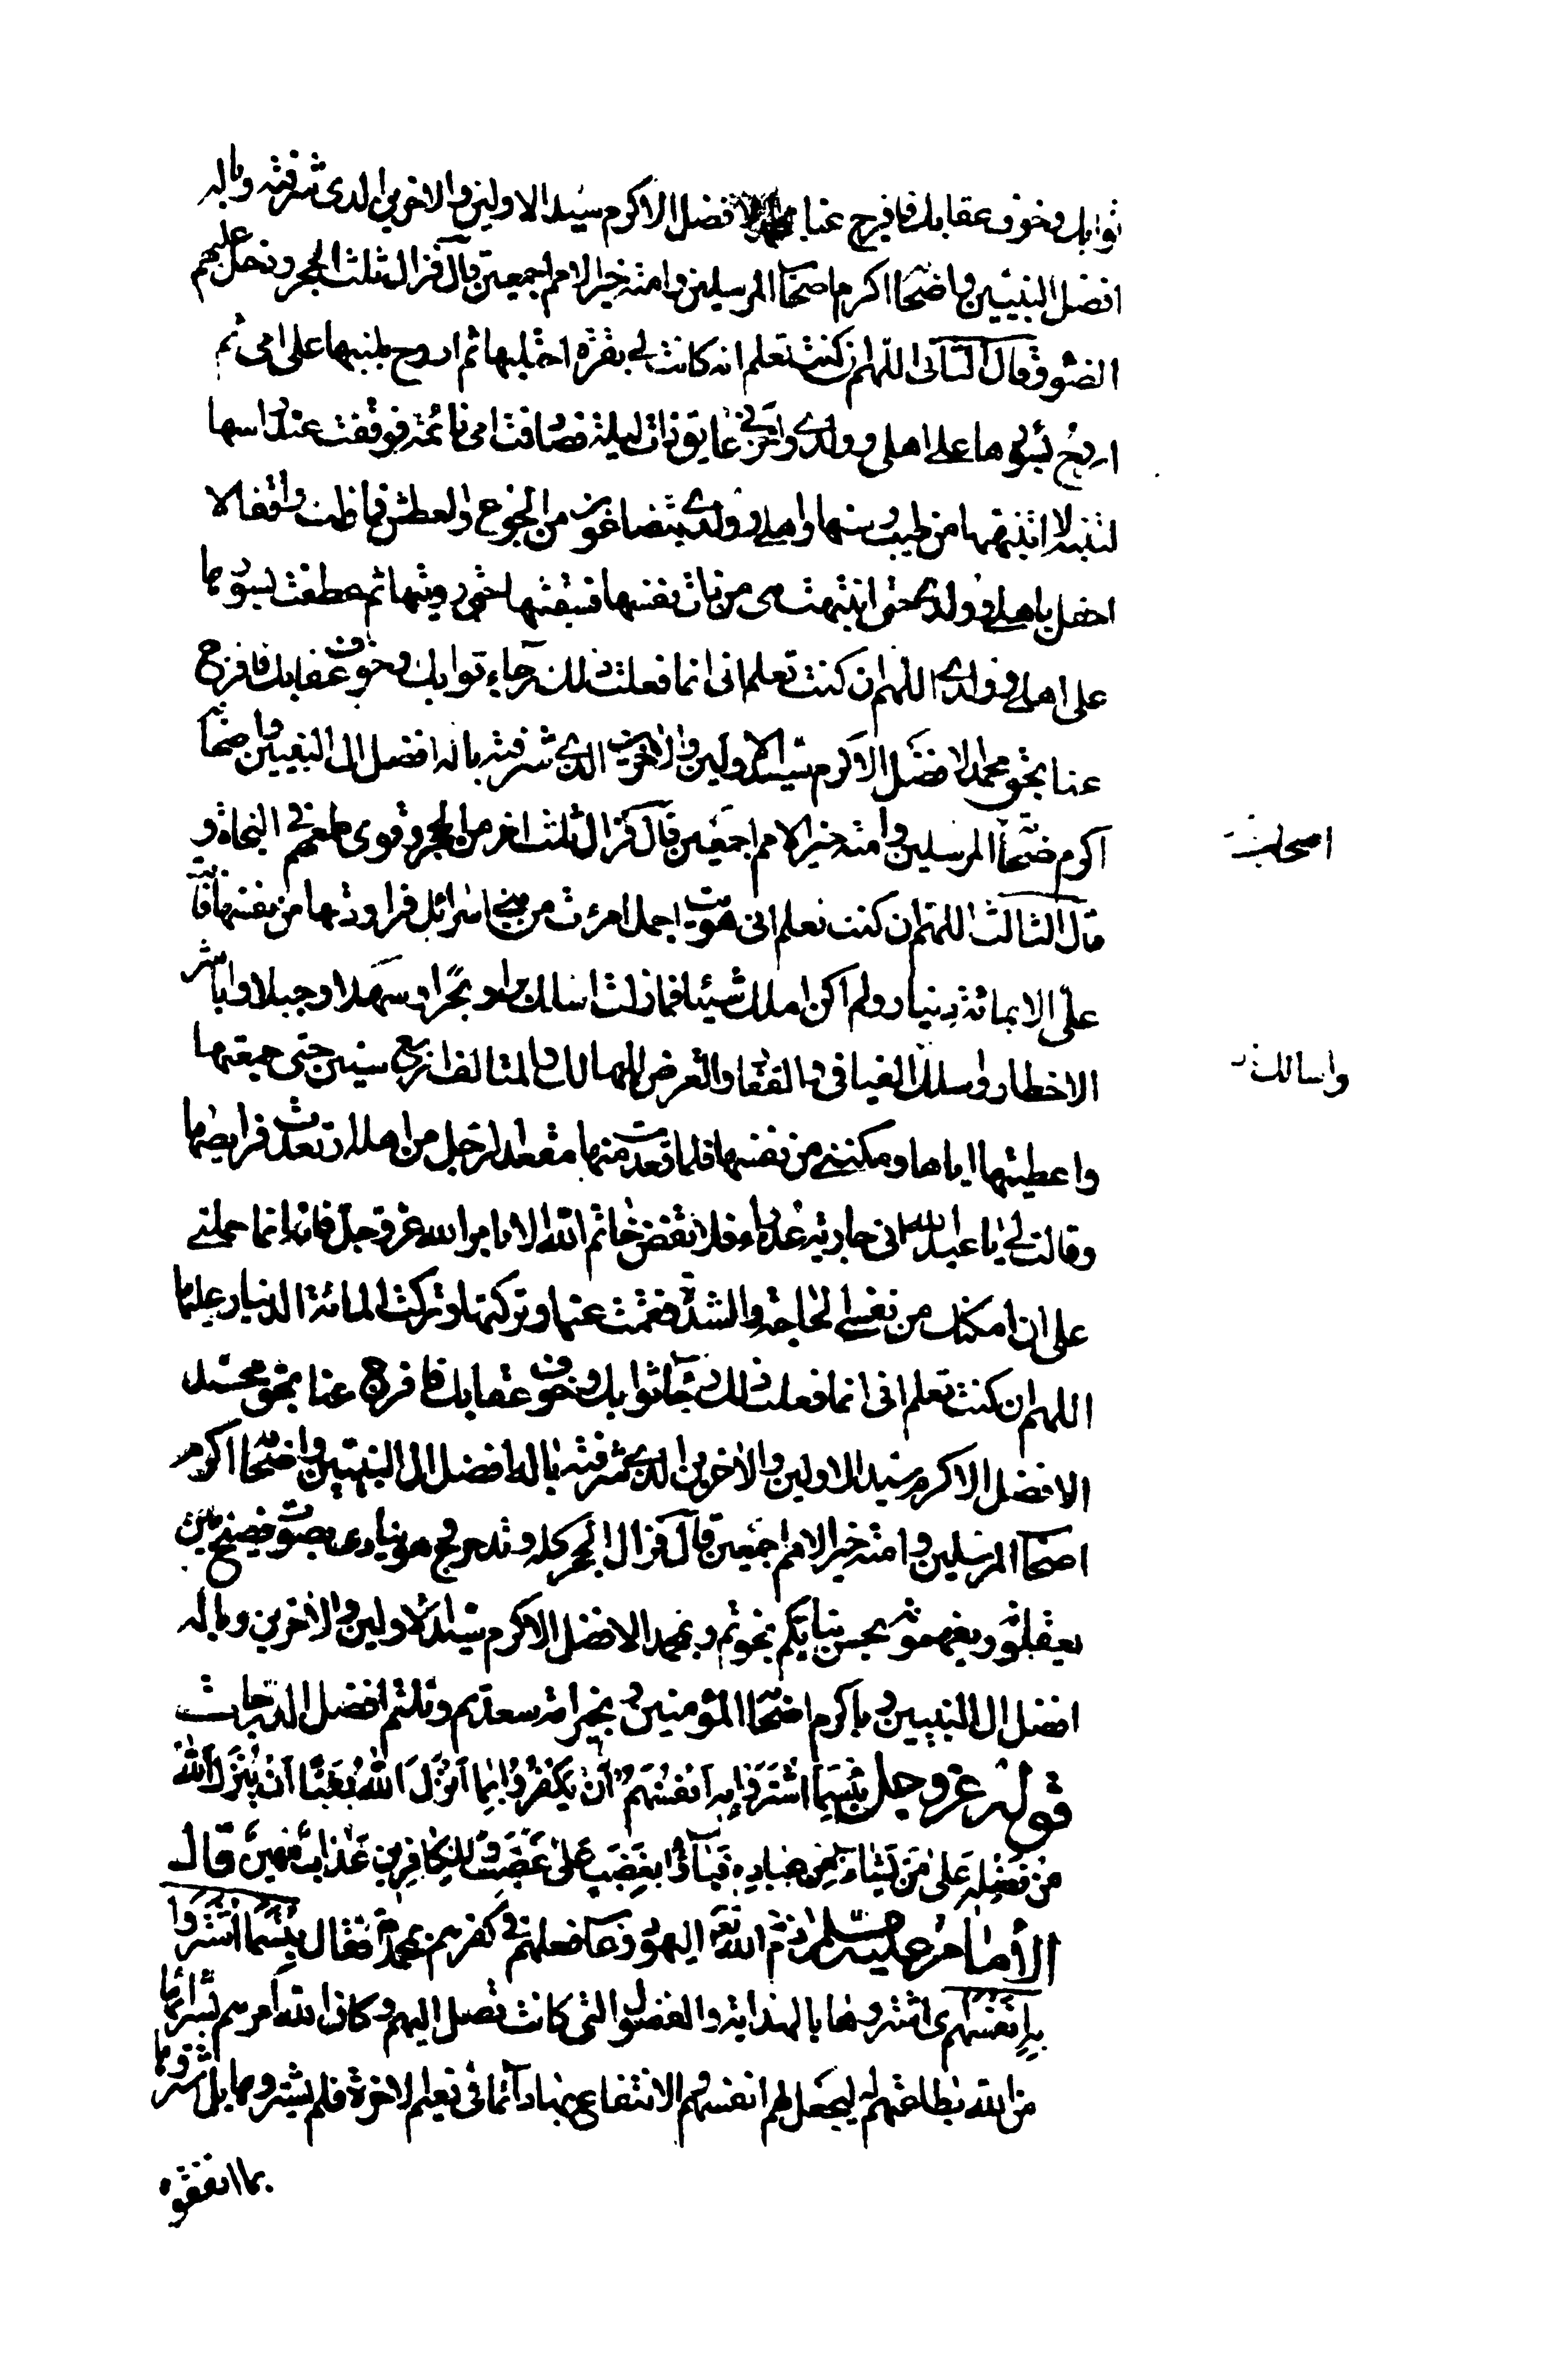 ثوابك وخوف عقابك فافرج عنا بمحمد الافضل الاكرم سيد الاولين والاخرين الذى شرفته وباله
افضل النبيين واصحابه اكرم اصحاب المرسلين وامته خير الامم اجمعين قال فزال ثلث الحجر ودخل عليهم
الضوء وقال الثانى اللهم ان كنت تعلم انه كانت لى بقرة احتلبها ثم اروح بلبنها على امى ثم
اروح بسؤرها على اهلى وولدى واخرنى عايق ذات ليلة فصادفت امى نائمة فوقفت عند راسها
لتنتبه لا انبهها من طيب وسنها واهلى وولدى يتضاغون من الجوع والعطش فما زلت واقفا لا
احفل باهلى وولدى حتى انتبهت هى من ذات نفسها فسقيتها حتى رويتها ثم عطفت بسؤرها
على اهلى وولدى اللهم ان كنت تعلم انى انما فعلت ذلك رجاء ثوابك وخوف عقابك فافرج
عنا بحق محمد الافضل الاكرم سيد الاولين والاخرين الذى شرفته باله افضل ال النبيين واصحابه
اكرم صحابة المرسلين وامته خير الامم اجمعين قال فزال ثلث اخر من الحجر وقوى طمعهم فى النجاة و
قال الثالث اللهم ان كنت تعلم انى هويت اجمل امرءة من بنى اسرائل فراودتها من نفسها فابت
على الا بمائة دينار ولم اكن املك شيئا فما زلت اسالك برا وبحرا وسهلا وجبلا واباشر
الاخطار واسلك الفيافى والقفار واتعرض للمهالك والمتالف اربع سنين حتى جمعتها
واعطيتها اياها ومكنتنى من نفسها فلما قعدت منها مقعد الرجل من اهله ارتعدت فرايصها
وقالت لى يا عبد الله انى جارية عذراء فلا تفض خاتم الله الا بامر الله عز وجل فانه انما حملنى
على ان امكنك من نفسى الحاجة والشدة فقمت عنها وتركتها وتركت المائة الدينار عليها
اللهم ان كنت تعلم انى انما فعلت ذلك رجاء ثوابك وخوف عقابك فافرج عنا بحق محمد
الافضل الاكرم سيد الاولين والاخرين الذى شرفته باله افضل ال النبيين واصحابه اكرم
اصحاب المرسلين وامته خير الامم اجمعين قال فزال الحجر كله وتدحرج وهو ينادى بصوت فصيح بين
يعقلونه ويفهمونه بحسن نياتكم نجوتم وبمحمد الافضل الاكرم سيد الاولين والاخرين وباله
افضل ال النبيين وباكرم اصحاب المؤمنين وبخير امة سعدتم ونلتم افضل الدرجات
قوله عز وجل بئسما اشتروا به انفسهم ان يكفروا بما انزل الله بغيا ان ينزل الله
من فضله على من يشاء من عباده فباؤا بغضب على غضب وللكافرين عذاب مهين قال
الامام عليه السلم ذم الله تعه اليهود وعاب فعلهم فى كفرهم بمحمد فقال بئسما اشتروا
به انفسهم اى اشتروها بالهدايه والفضول التى كانت تصل اليهم وكان الله امرهم بشرائها
من الله بطاعتهم له ليجعل لهم انفسهم والانتفاع بها دائما فى نعيم الاخرة فلم يشتروها بل اشتروها
بما انفقوه
اصحاب
واسالك